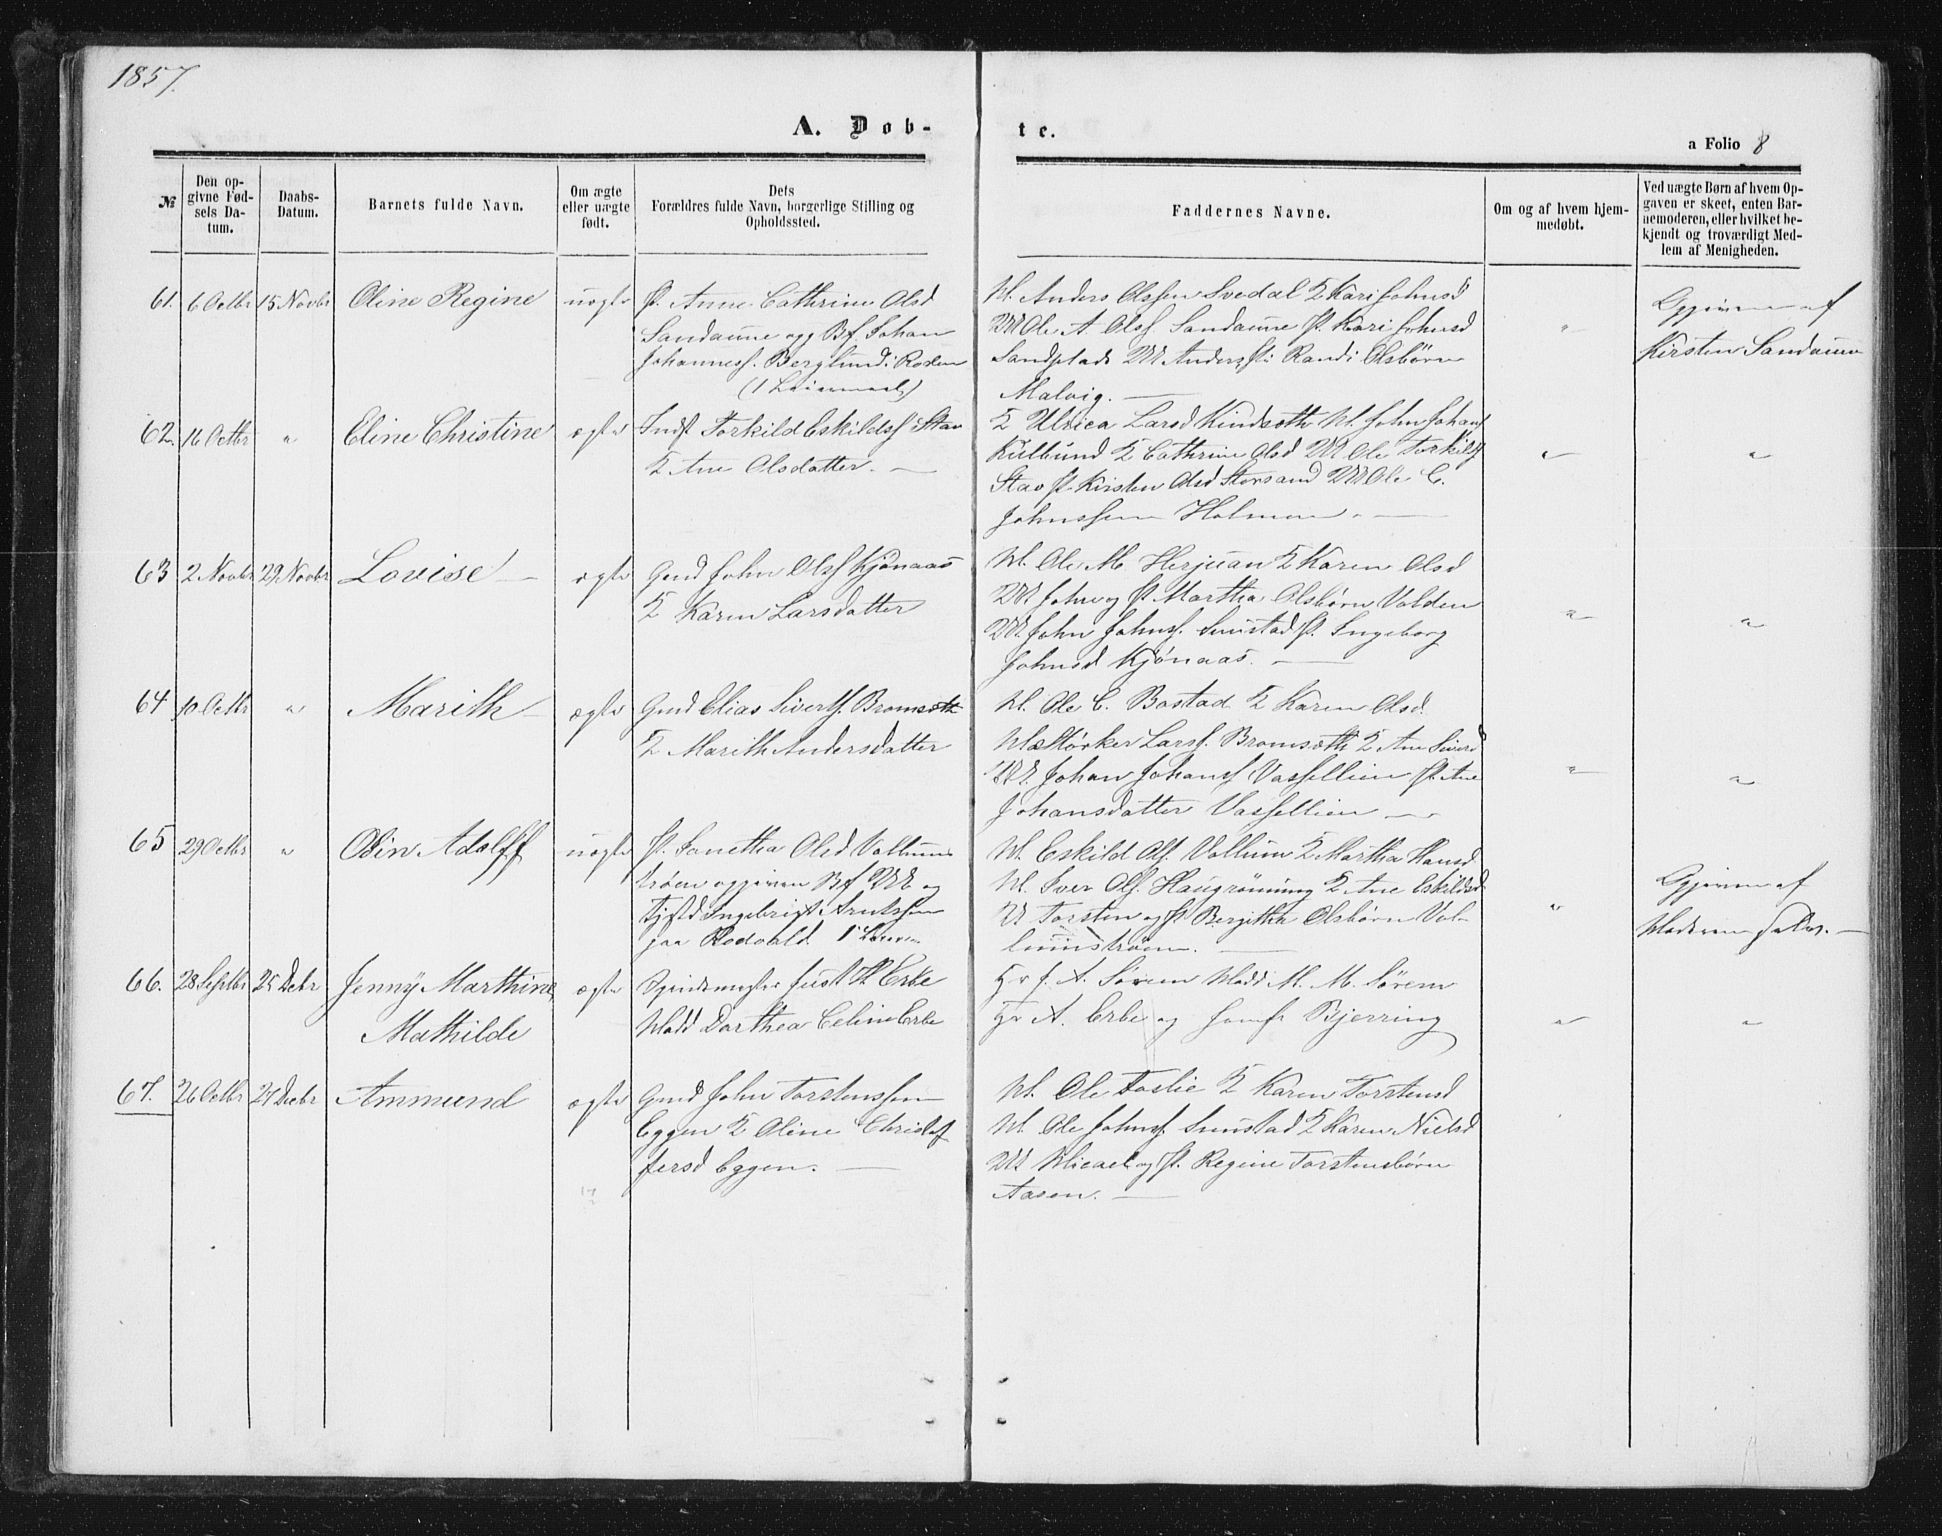 1857.
A. Døb-
te.
a Folio 8
№
Den op-
givne Fød-
sels Da-
tum.
Daabs-
Datum.
Barnets fulde Navn.
Om ægte
eller uægte
født.
Dets
Forældres fulde Navn, borgerlige Stilling og
Opholdssted.
Faddernes Navne.
Om og af hvem hjem-
medøbt.
Ved uægte Børn af hvem Op-
gaven er skeet, enten Bar-
nemoderen, eller hvilket be-
kjendt og troværdigt Med-
lem af Menigheden.
61. 6 Octbr 15 Novbr Oline Regine uægte
P. Anne Cathrine Olsd
Sandaune og Bf. Johan
Johannesf. Berglund i Roden
M. Anders Olssen Svedal K Kari Johnsd
UM Ole A Olsf Sandaune P. Kari Johnsd
Sandplads UM Anders P. Randi Olsbørn
Malvig.
"
Opgiven af
Kirsten Sandaune
62. 16 Octbr " Eline Christine ægte
Indst Torkild Eskildsf Stav
K Ane Olsdatter.
K Ulrica Larsd M. John Johansf
K Cathrine Olsd UM Ole Torkildsf
Stav P. Kirsten Olsd Storsand UM Ole C.
Johnssen Holmen.
" "
63 2 Novbr 29 Novbr Lovise ægte
Gmd John Olsf Kjønaas
K Karen Larsdatter
M. Ole M. Herjuan K Karen Olsd
UM John og P. Martha Olsbørn Valden
UM John Johnsf. P. Ingeborg
Johnsd Kjønaas.
" "
64 10 Octbr " Marith ægte
Gmd Elias Sivertsf. Bromseth
K Marith Andersdatter
M. Ole C. Bostad K Karen Olsd.
M Størker Larsf. Bromseth K Ane Siversd
UM Johan Johansf Vassellien P. Ane
Johansdatter Vassellien
" "
65 29 Octbr " Odin Adolff uægte
P. Olsd Vollum-
trøen opgiven Bf UM og
Ingebrigt Arntssen
M. Eskild Olsf. Vollum K Martha Hansd
M. Iver Olsf. Haugrønning K Ane Eskildsd
U Torsten og P. Bergitha Olsbørn Vol-
lumstrøen.
"
Opgiven af
Moderen selv.
66. 28 Septbr 25 Debr Jenny Marthine
Mathilde
ægte
Just H Erbe
Madd Dorthea Celine Erbe
Hr J. A. Sørem Madd M. M. Sørem
Hr A. Erbe og Jomfr Bjerring
" "
67. 26 Octbr 27 Decbr Ammund ægte
Gmd John Torstenssen
Eggen K Oline Christof
fersd Eggen.
M. Ole Foslie K Karen Torstensd
M. Ole Johnsf. K Karen Nielsd
UM Micael og P. Regine Torstensbørn
Aasen.